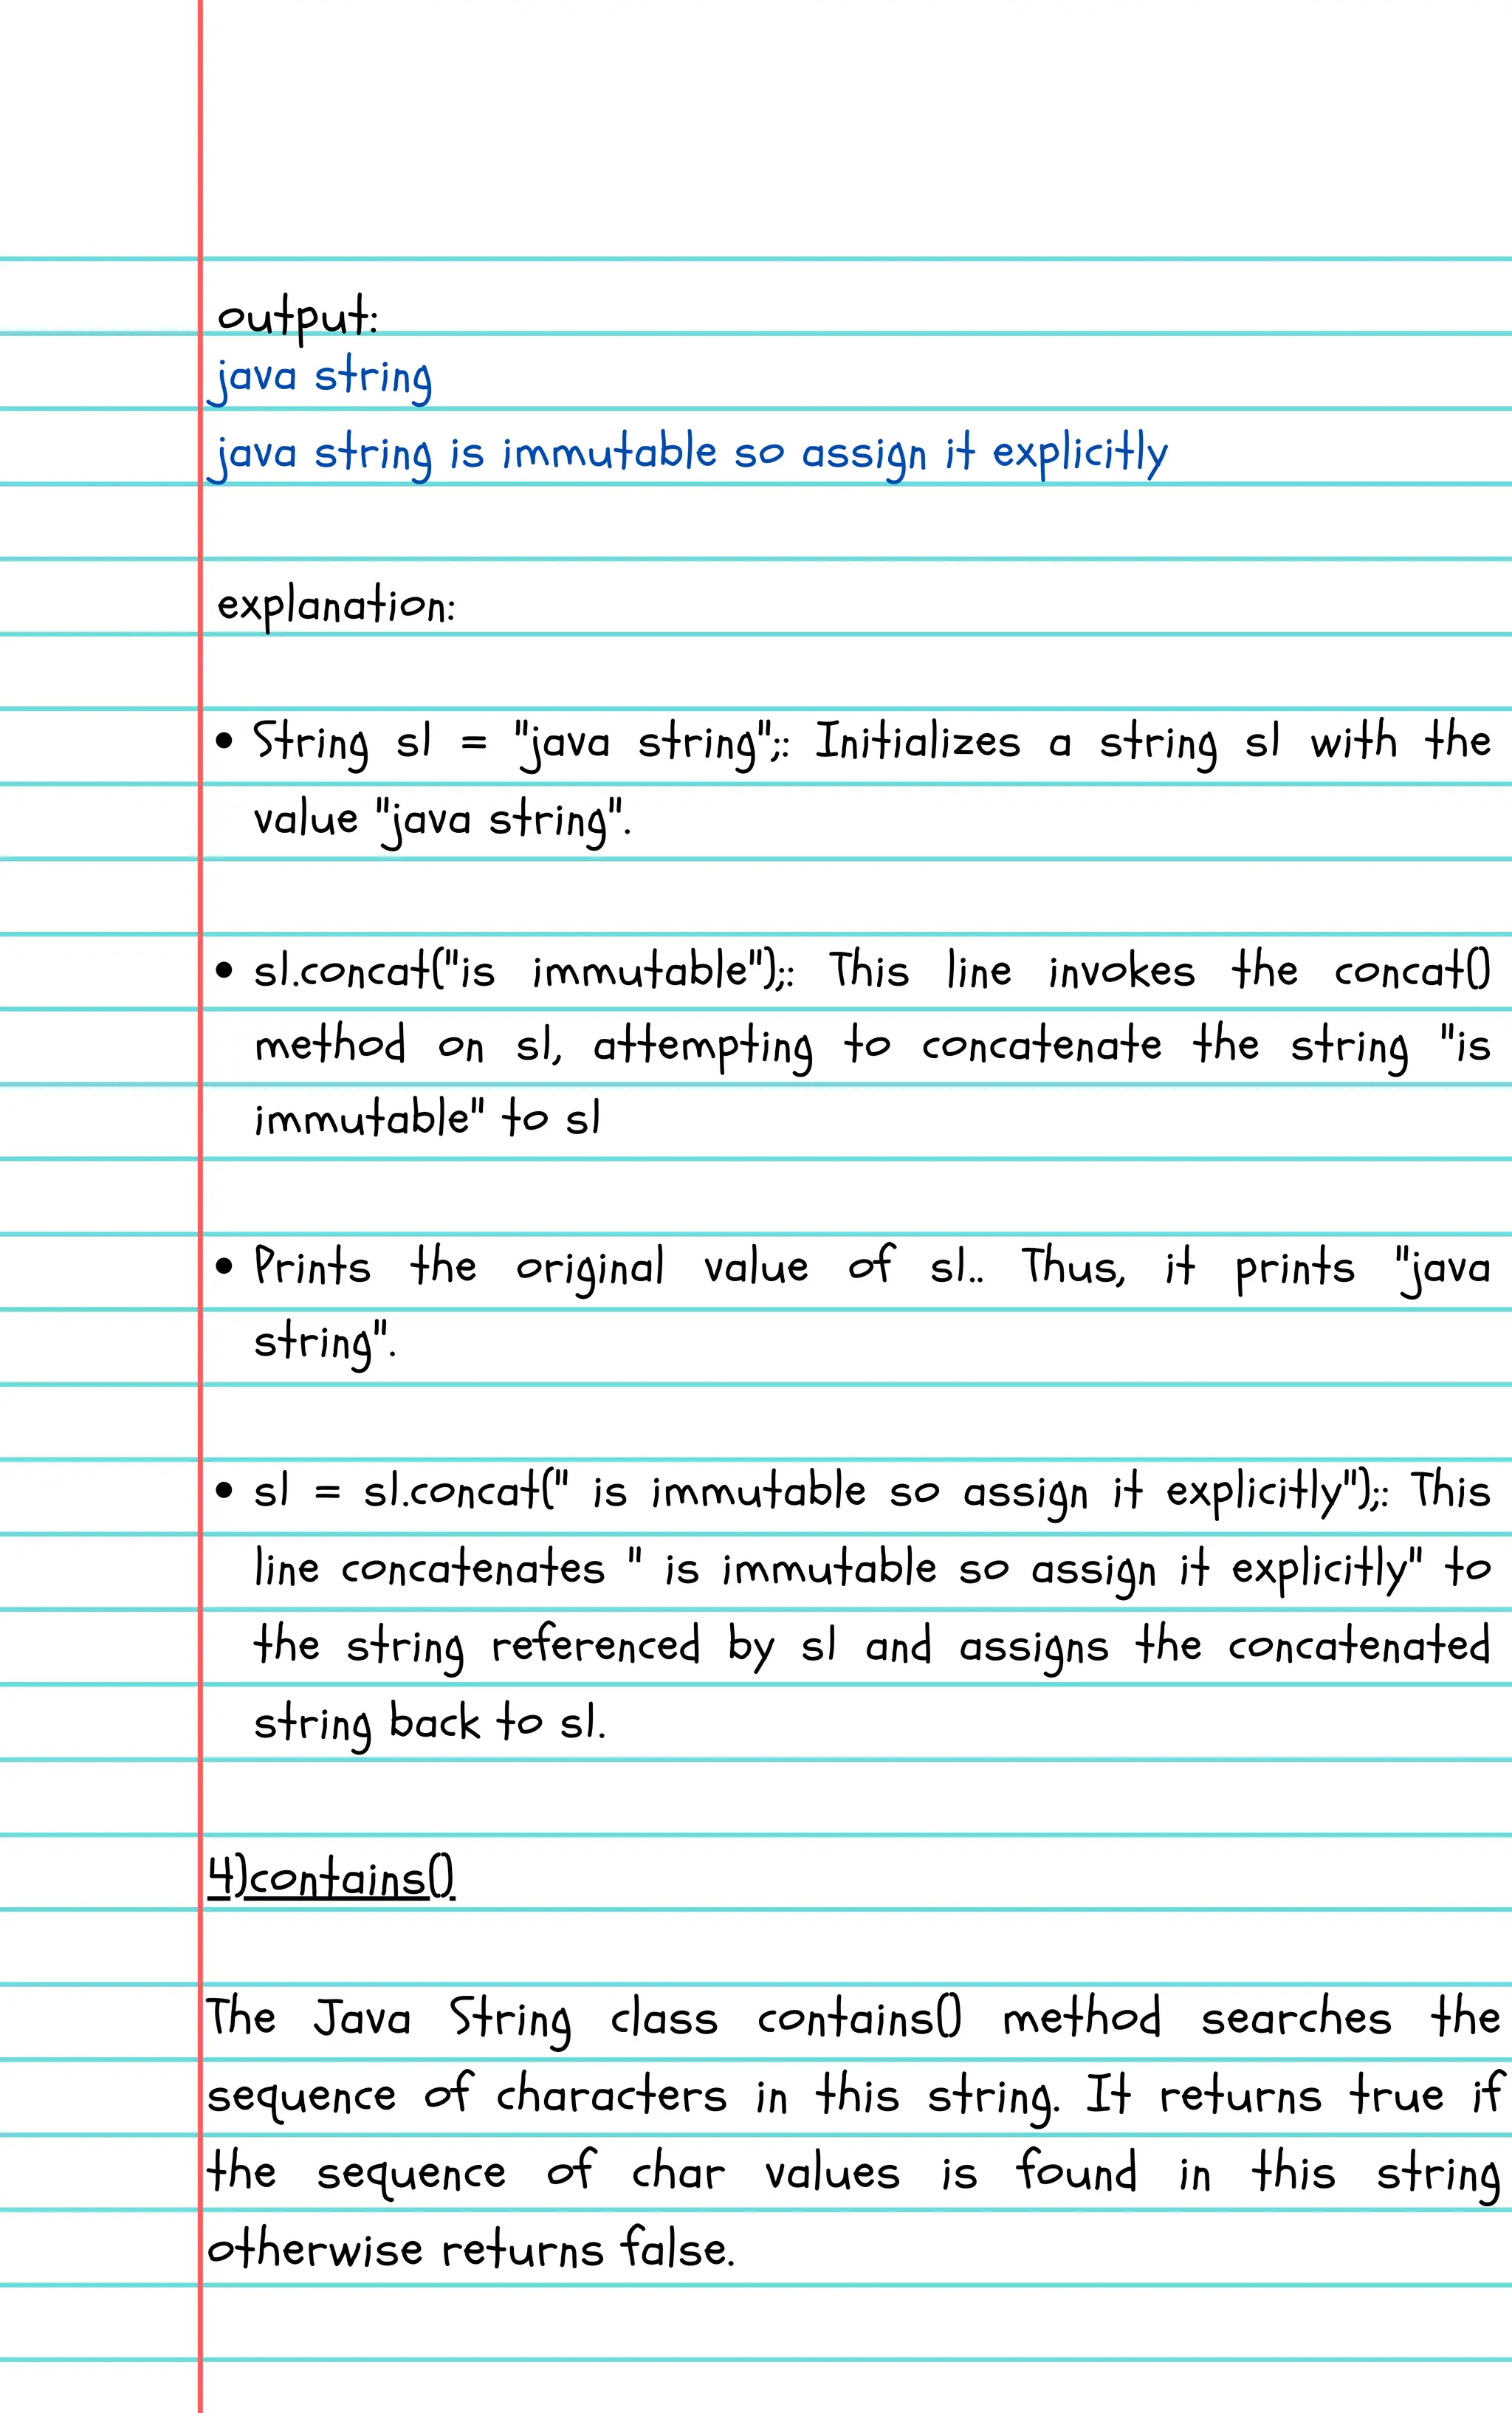 output:
java string
java string is immutable so assign it explicitly
explanation:
• String s1 = "java string";: Initializes a string s1 with the
value "java string".
• s1.concat("is immutable");: This line invokes the concat()
method on s1, attempting to concatenate the string "is
immutable" to s1
• Prints the original value of s1.. Thus, it prints "java
string".
• s1 = s1.concat(" is immutable so assign it explicitly");: This
line concatenates " is immutable so assign it explicitly" to
the string referenced by s1 and assigns the concatenated
string back to s1.
4)contains()
The Java String class contains() method searches the
sequence of characters in this string. It returns true if
the sequence of char values is found in this string
otherwise returns false.